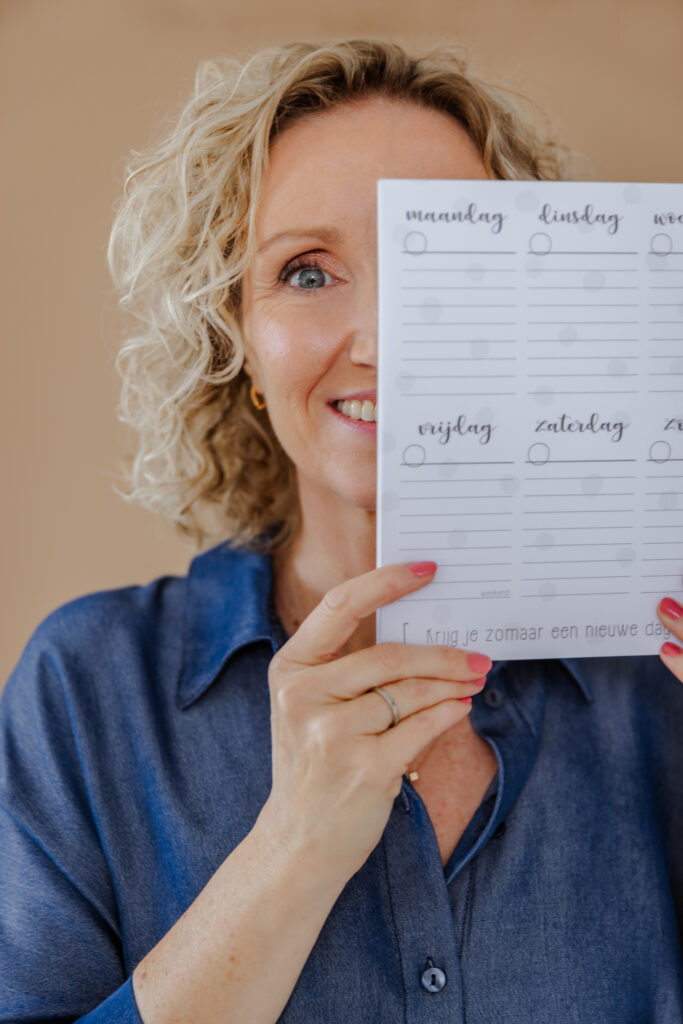 maandag dinsdag
vrijdag zaterdag
weekend
Krijg je zomaar een nieuwe dag